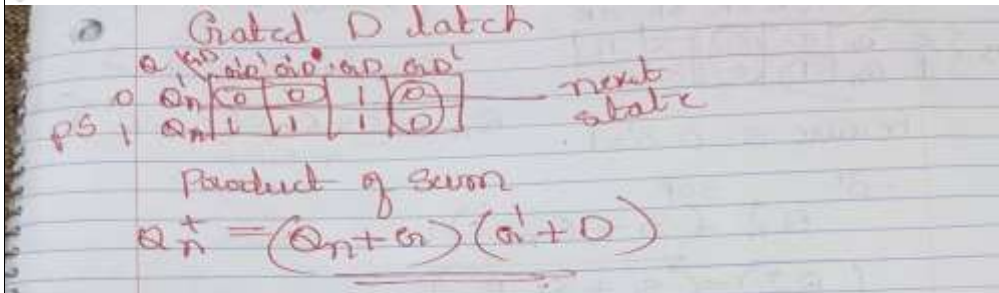 Gated D latch
Q GD G'D' G'D GD GD'
0 Qn' 0 0 1 0 next
PS 1 Qn 1 1 1 0 state
Product of Sum
Qn+ = (Qn+G)(G'+D)